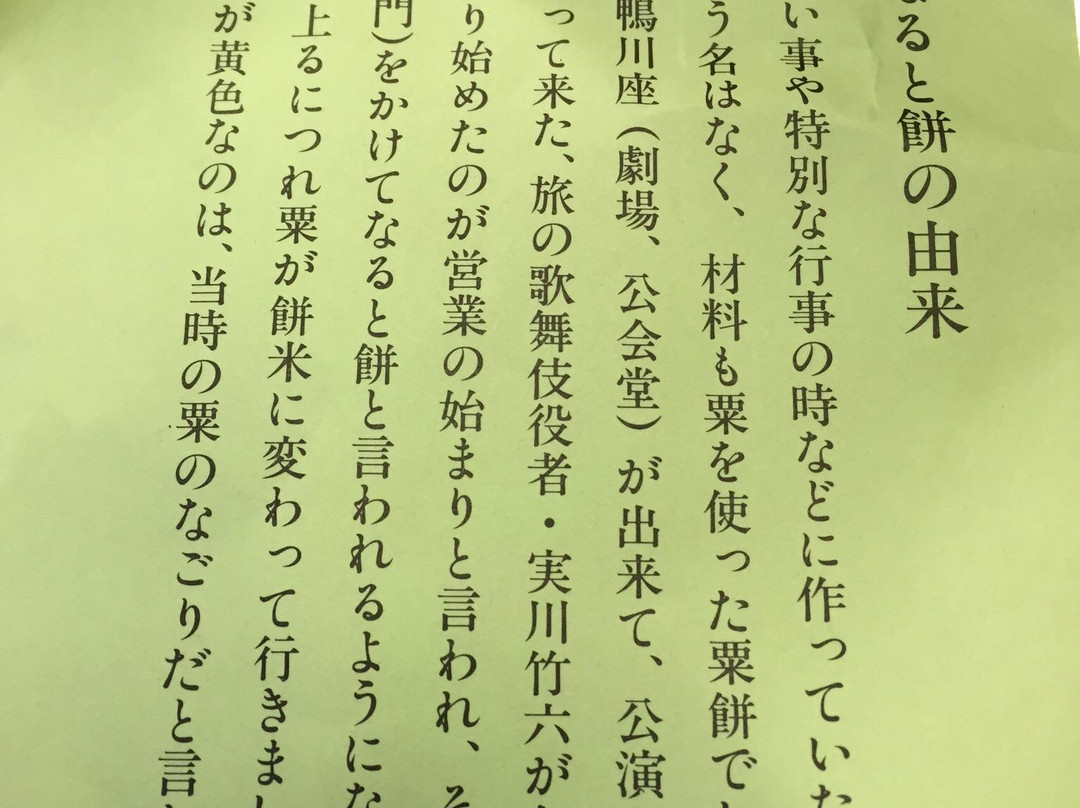 なると餅の由来
い事や特別な行事の時などに作っていた
う名はなく、材料も粟を使った粟餅で
鴨川座(劇場、公会堂)が出来て、公演
って来た、旅の歌舞伎役者・実川竹六が
り始めたのが営業の始まりと言われ、そ
門)をかけてなると餅と言われるようにな
上るにつれ粟が餅米に変わって行きまし
が黄色なのは、当時の粟のなごりだと言